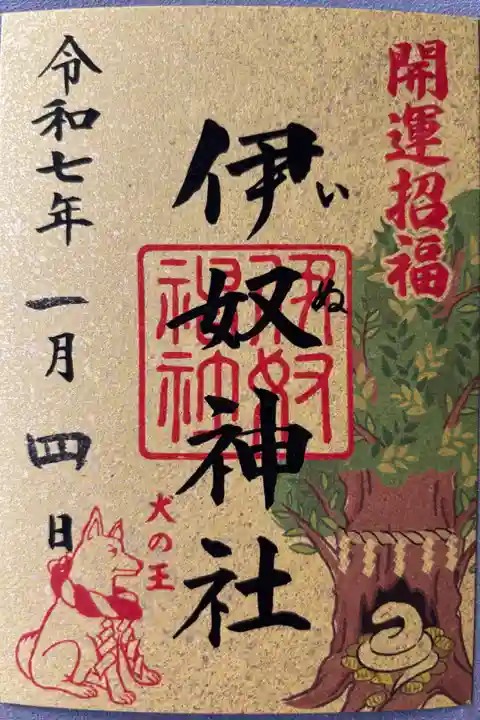 開運招福
伊奴神社
いぬ
犬の王
令和七年
一月四日